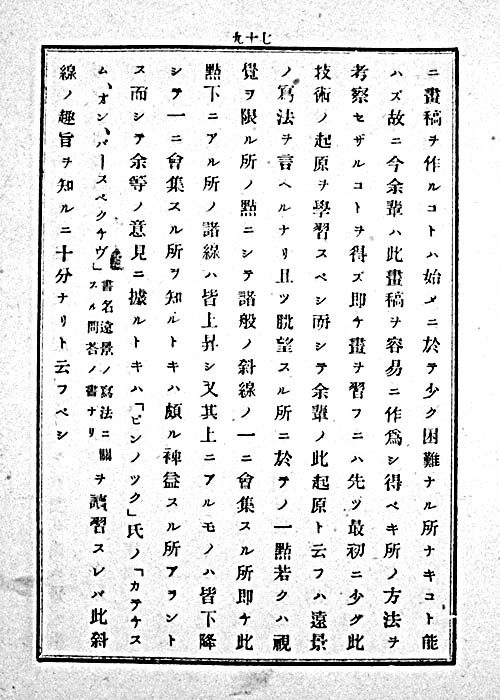 七十九
ニ畫稿ヲ作ルコトハ始メニ於テ少ク困難ナル所ナキコト能
ハズ故ニ今余輩ハ此畫稿ヲ容易ニ作爲シ得ベキ所ノ方法ヲ
考察セザルコトヲ得ズ即チ畫ヲ習フニハ先ヅ最初ニ少ク此
技術ノ起原ヲ學習スベシ而シテ余輩ノ此起原ト云フハ遠景
ノ寫法ヲ言ヘルナリ且ツ眺望スル所ニ於テノ一點若クハ視
覺ヲ限ル所ノ點ニシテ諸般ノ斜線ノ一ニ會集スル所即チ此
點下ニアル所ノ諸線ハ皆上昇シ又其上ニアルモノハ皆下降
シテ一ニ會集スル所ヲ知ルトキハ頗ル裨益スル所アラント
ス而シテ余等ノ意見ニ據ルトキハ「ピンノック」氏ノ「カテキス
ム、オン、パースペクチヴ」書名遠景ノ寫法ニ關スル問答ノ書ナリヲ讀習スレバ此斜
線ノ趣旨ヲ知ルニ十分ナリト云フベシ